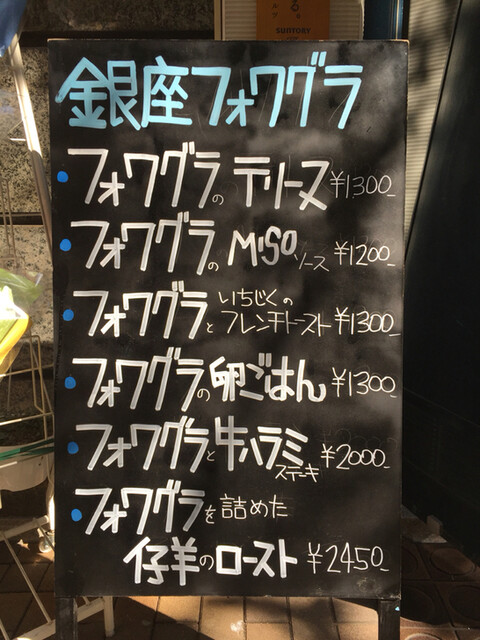 SUNTORY
銀座フォワグラ
・フォワグラのテリーヌ ¥1300-
・フォワグラのMISOソース ¥1200-
・フォワグラといちじくの
フレンチトースト ¥1300-
・フォワグラの卵ごはん ¥1300-
・フォワグラと牛ハラミ
ステーキ ¥2000-
・フォワグラを詰めた
仔羊のロースト ¥2450-